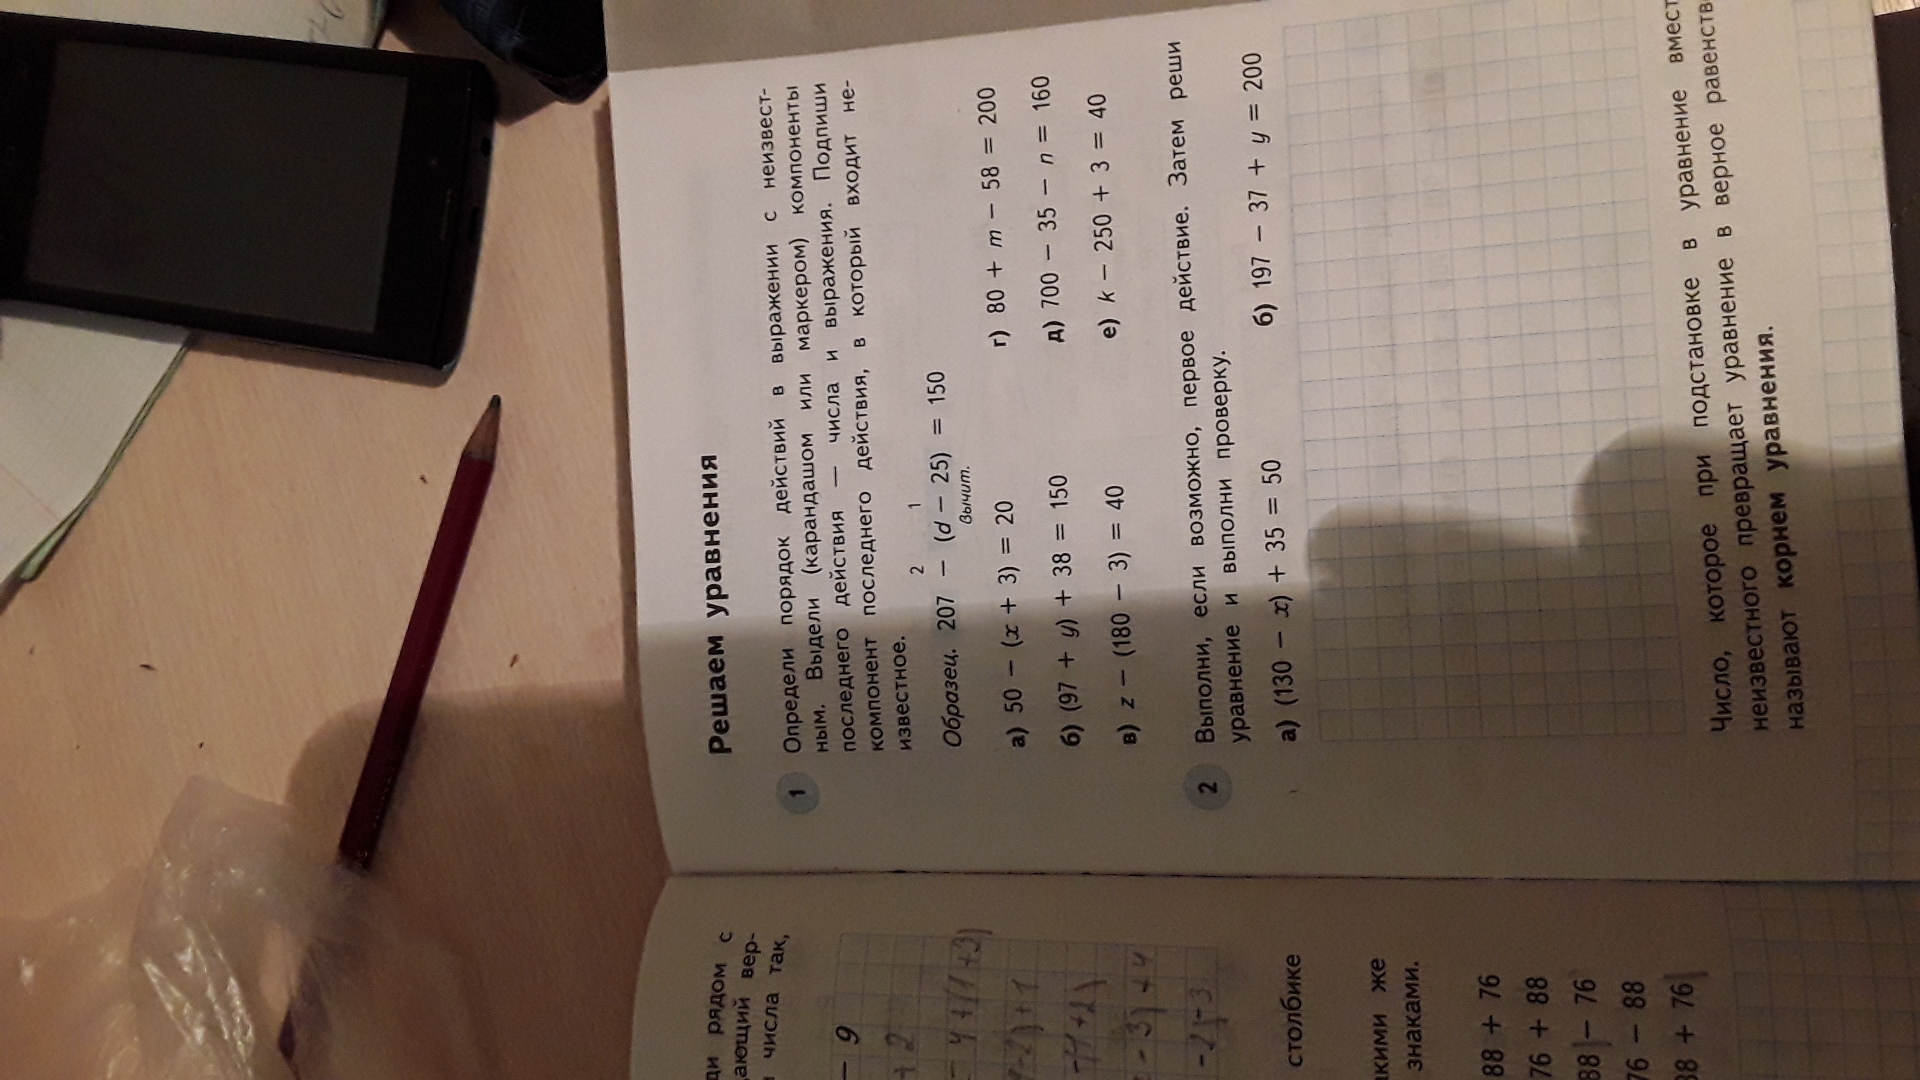 Решаем уравнения
1 Определи порядок действий в выражении с неизвест-
ным. Выдели (карандашом или маркером) компоненты
последнего действия — числа и выражения. Подпиши
компонент последнего действия, в который входит не-
известное.
2 1
Образец. 207 − (d − 25) = 150
Вычит.
а) 50 − (x + 3) = 20 г) 80 + m − 58 = 200
б) (97 + y) + 38 = 150 д) 700 − 35 − n = 160
в) z − (180 − 3) = 40 е) k − 250 + 3 = 40
2 Выполни, если возможно, первое действие. Затем реши
уравнение и выполни проверку.
а) (130 − x) + 35 = 50 б) 197 − 37 + y = 200
Число, которое при подстановке в уравнение вмест
неизвестного превращает уравнение в верное равенств
называют корнем уравнения.
ди рядом с
дающий вер-
числа так,
− 9
+ 2
− 4 + (1 + 3)
− 2) + 1
− (4 + 2)
− 3) + 4
− 2) − 3
столбике
акими же
знаками.
88 + 76
76 + 88
88) − 76
76 − 88
88 + 76)